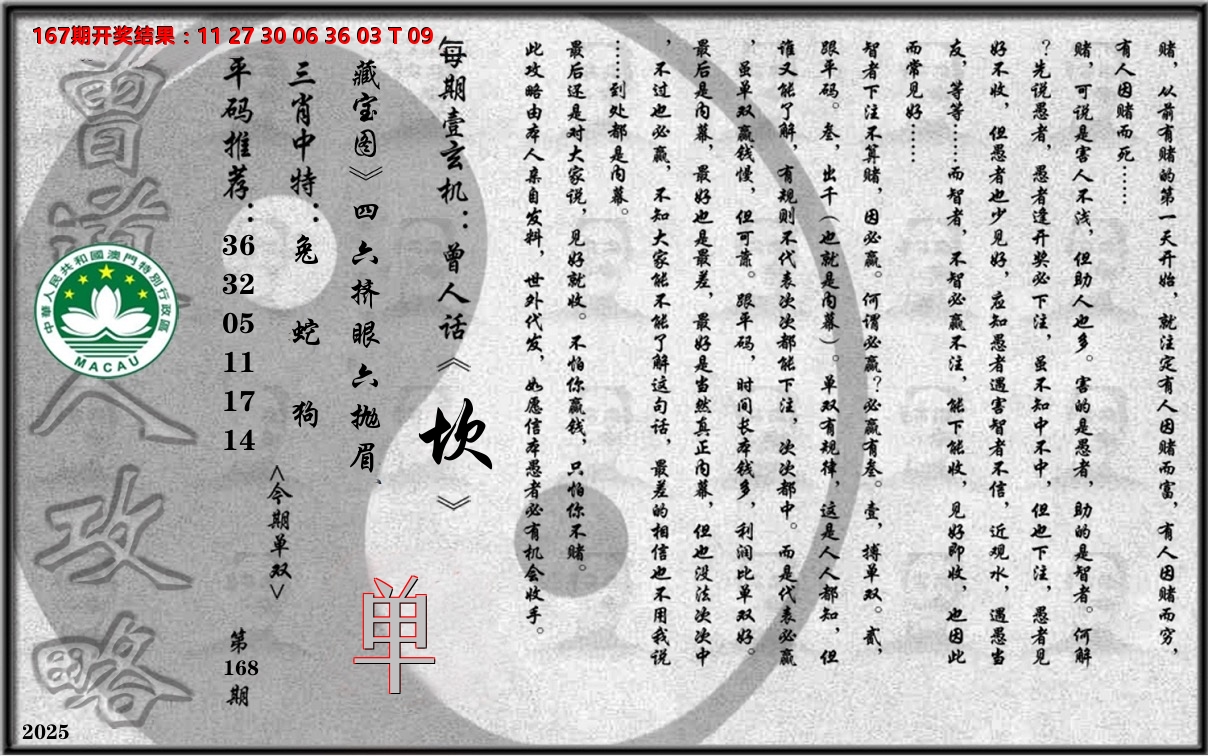 167期开奖结果：11 27 30 06 36 03 T 09
赌，从前有赌的第一天开始，就注定有人因赌而富，有人因赌而穷，
有人因赌而死……
赌，可说是害人不浅，但助人也多。害的是愚者，助的是智者。何解
？先说愚者，愚者逢开奖必下注，虽不知中不中，但也下注，愚者见
好不收，但愚者也少见好，应知愚者遇害智者不信，近观水，遇愚当
友，等等……而智者，不智必赢不注，能下能收，见好即收，也因此
而常见好……
智者下注不算赌，因必赢。何谓必赢？必赢有叁。壹，搏单双。贰，
跟平码。叁，出千（也就是内幕）。单双有规律，这是人人都知，但
谁又能了解，有规则不代表次次都能下注，次次都中。而是代表必赢
，虽单双赢钱慢，但可靠。跟平码，时间长本钱多，利润比单双好。
最后是内幕，最好也是最差，最好是当然真正内幕，但也没法次次中
，不过也必赢，不知大家能不能了解这句话，最差的相信也不用我说
……到处都是内幕。
最后还是对大家说，见好就收。不怕你赢钱，只怕你不赌。
此攻略由本人亲自发料，世外代发，如愿信本愚者必有机会收手。
每期壹玄机：曾人话《坎》
藏宝图》四六挤眼六抛眉、
单
三肖中特：兔 蛇 狗
<今期单双>
平码推荐：36 32 05 11 17 14
第168期
曾道人攻略
中華人民共和國澳門特別行政區
MACAU
2025